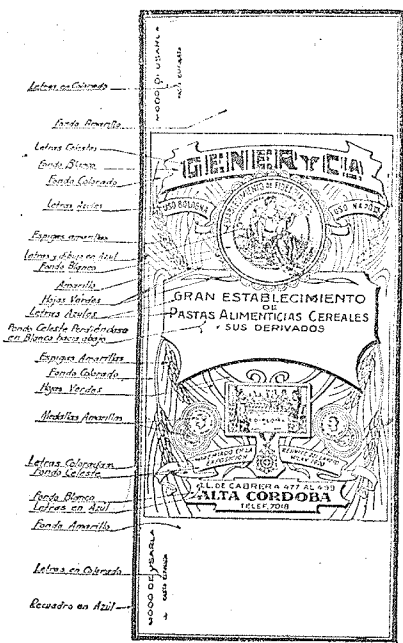 Letras en Colorado
Fondo Amarillo
Letras Celestes
Fondo Blanco
Fondo Colorado
Letras Azules
Espigas amarillas
Letras y dibujo en Azul
Fondo Blanco
Amarillo
Hojas Verdes
Letras Azules
Fondo Celeste Perdiéndose
en Blanco hacia abajo
Espigas Amarillas
Fondo Colorado
Hojas Verdes
Medallas Amarillas
Letras Coloradas
Fondo Celeste
Fondo Blanco
Letras en Azul
Fondo Amarillo
Letras en Colorado
Recuadro en Azul
MODO DE USARLA
GENER Y CIA
USO BOLOGNA
USO
GRAN ESTABLECIMIENTO
DE
PASTAS ALIMENTICIAS CEREALES
Y SUS DERIVADOS
PREMIADO EN LA
EXPOSICION
G. L. DE CABRERA 477 AL 499
ALTA CORDOBA
TELEF. 7018
MODO DE USARLA